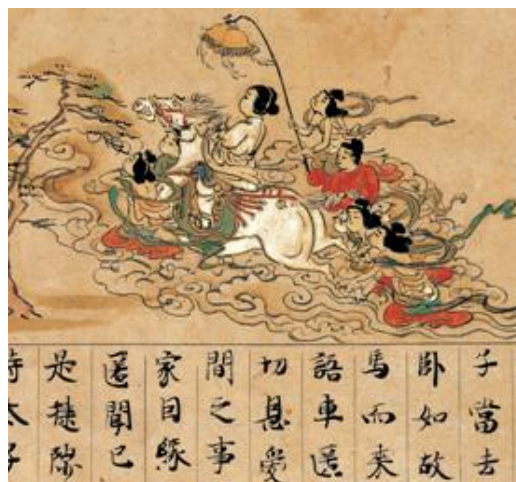 子當去
卧如故
馬而来
語車匿
切恩愛
間之事
家因縁
匿聞已
是揵陟
時太子